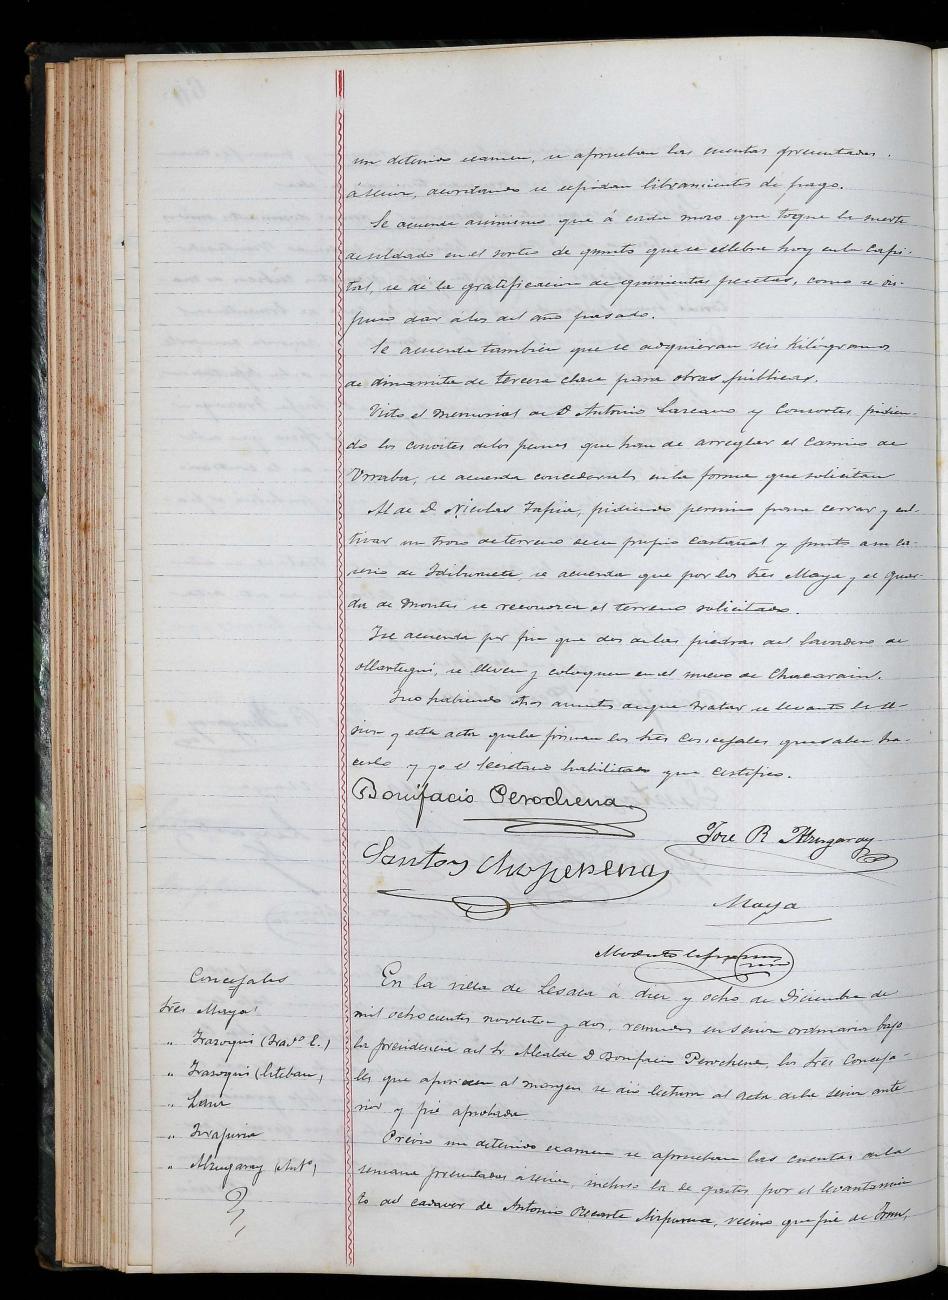 un detenido examen, se aprueban las cuentas presentadas
á sesion, acordando se espidan libramientos de pago.
Se acuerda asimismo que á cada mozo que toque la suerte
de soldado en el sorteo de quintos que se celebre hoy en la Capi-
tal, se dé la gratificacion de quinientas pesetas, como se dis-
puso dar á los del año pasado.
Se acuerda tambien que se adquieran seis Kilógramos
de dinamita de tercera clase para obras públicas.
Visto el memorial de D Antonio y Consortes pidien-
do los convites de los peones que han de arreglar el Camino de
Urraba, se acuerda concederseles en la forma que solicitan
Al de D. Nicolas Tapia, pidiendo permiso para cerrar y cul-
tivar un trozo de terreno en su propio Castañal y junto a su ca-
serio de, se acuerda que por los Sres Maya y el Guar-
da de Montes se reconozca el terreno solicitado.
Se acuerda por fin que dos de las piedras del lavadero de
, se lleven y coloquen en el nuevo de
Y no habiendo otros asuntos de que tratar se levantó la se-
sion y esta acta que la firman los Sres Concejales que saben ha-
cerlo y yo el Secretario habilitado que certifico.
Bonifacio Perochena
Jose R Alzugaray
Santos Chopperena
Maya
Modesto
Concejales
Sres Maya
" Irazoqui (Grav.º E.)
" Irazoqui (Esteban)
"
"
" Alzugaray (Ant.º)
En la villa de Lesaca á diez y ocho de Diciembre de
mil ochocientos noventa y dos, reunidos en sesion ordinaria bajo
la presidencia del Sr. Alcalde D Bonifacio Perochena, los Sres Conceja-
les que aparecen al margen se dió lectura al acta de la sesion ante
rior y fué aprobada
Previo un detenido examen se aprueban las cuentas de la
semana presentadas á sesion, incluso la de gastos por el levantamien
to del cadaver de Antonio, vecino que fué de Irun,